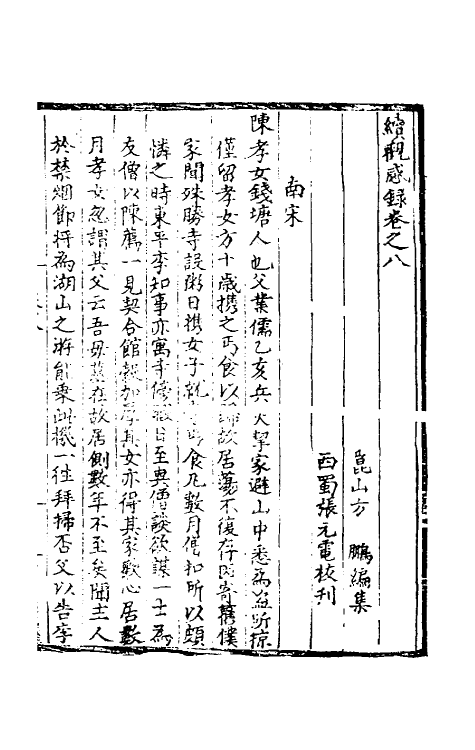 續觀感錄卷之八
崑山方 鵬編集
西蜀張元電校刊
南宋
陳孝女錢塘人也父業儒乙亥兵火挈家避山中悉為盜所掠
僅留孝女方十歲携之丐食以歸故居蕩不復存因寄舊僕
家間殊勝寺設粥日携女子就丐食凡數月僧扣所以頗
憐之時東平李知事亦寓寺傍暇日至與僧談欲謀一士為
友僧以陳薦一見契合館穀加厚其女亦得其家歡心居數
月孝女忽謂其父云吾母墓在故居側數年不至矣聞主人
於禁烟節將為湖山之游能乘此機一往拜掃否父以告李